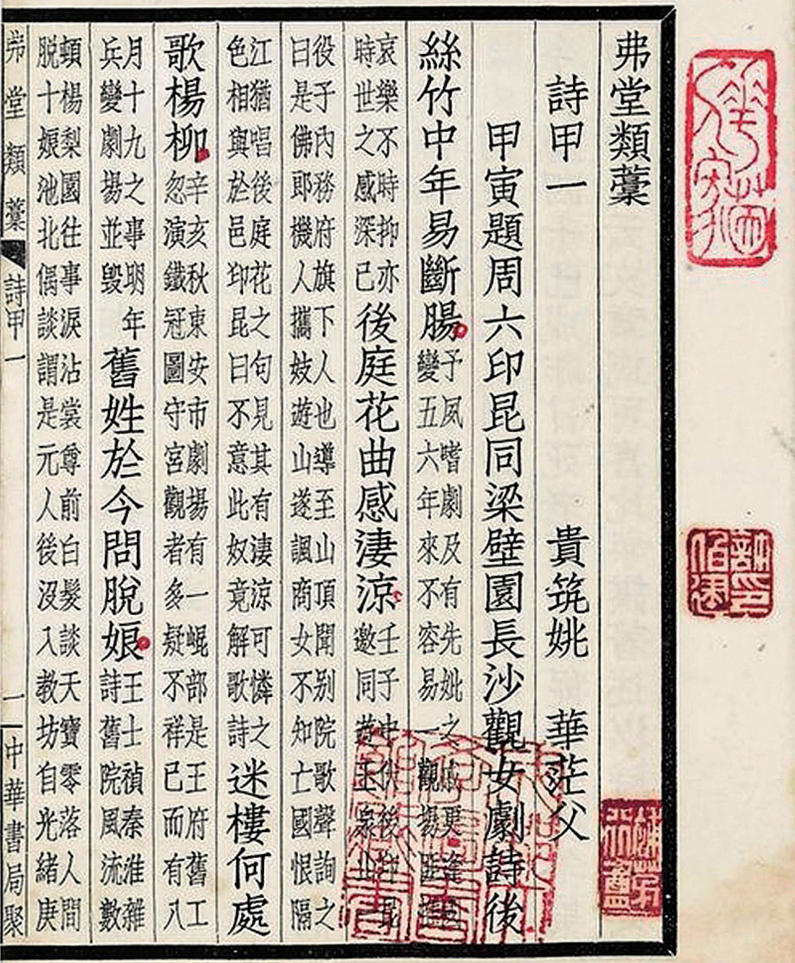 弗堂類藁
詩甲一 貴筑姚 華茫父
甲寅題周六印昆同梁壁園長沙觀女劇詩後
絲竹中年易斷腸
予夙嗜劇及有先妣之
變五六年來不容易一觀場
哀樂不時抑亦
時世之感深已
後庭花曲感淒涼
壬子中伏後
邀同遊玉泉山
役予內務府旗下人也導至山頂聞別院歌聲詢之
曰是佛郎機人攜妓遊山遂諷商女不知亡國恨隔
江猶唱後庭花之句見其有淒涼可憐之
色相與於邑印昆曰不意此奴竟解歌詩
迷樓何處
歌楊柳
辛亥秋東安市劇場有一崐部是王府舊工
忽演鐵冠圖守宮觀者多疑不祥已而有八
月十九之事明年
兵變劇場並毀
舊姓於今問脫娘
王士禎秦淮雜
詩舊院風流數
頓楊梨園往事淚沾裳尊前白髮談天寶零落人間
脫十娘池北偶談謂是元人後沒入教坊自光緒庚
弗堂類藁 詩甲一 一 中華書局聚